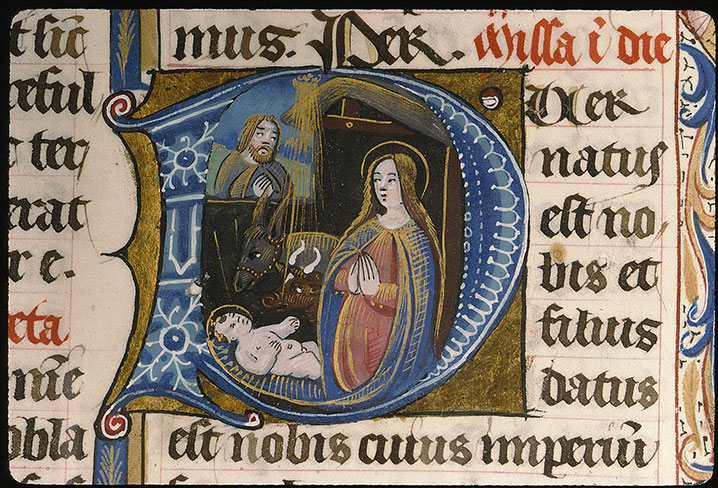 resul
ter
erat
r e.
eta
obla
mus. Per. Missa ī die
PUER
natus
est no
bis et
filius
datus
est nobis cuius imperiū